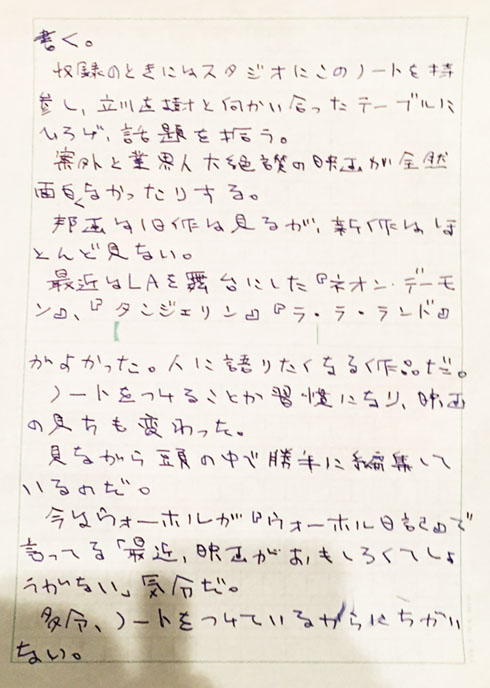 書く。
収録のときにはスタジオにこのノートを持
参し、立川直樹と向かい合ったテーブルに
ひろげ、話題を拾う。
案外と業界人大絶賛の映画が全然
面白くなかったりする。
邦画は旧作は見るが、新作はほ
とんど見ない。
最近はLAを舞台にした『ネオン・デーモ
ン』、『タンジェリン』『ラ・ラ・ランド』
がよかった。人に語りたくなる作品だ。
ノートをつけることが習慣になり、映画
の見方も変わった。
見ながら頭の中で勝手に編集して
いるのだ。
今はウォーホルが『ウォーホル日記』で
言ってる「最近、映画がおもしろくてしょ
うがない」気分だ。
多分、ノートをつけているからにちがい
ない。